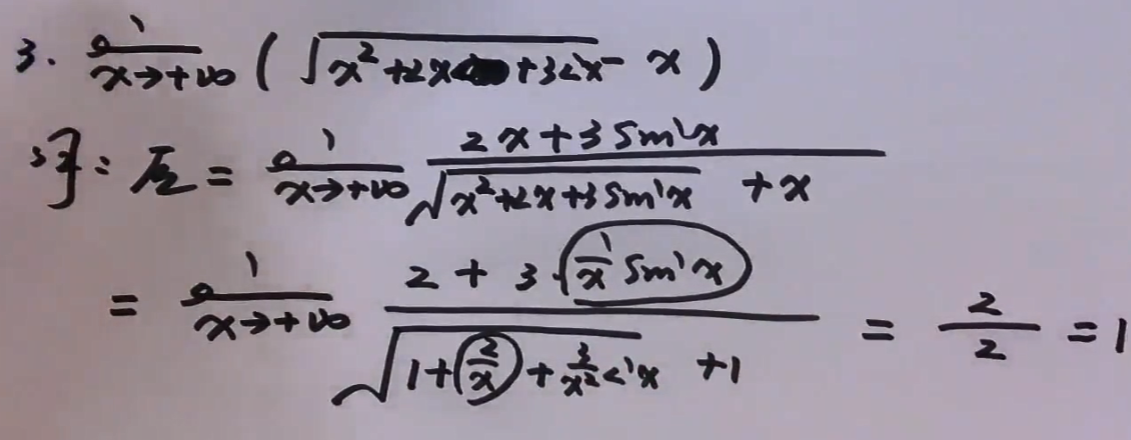 3. lim x→+∞ (√(x²+2x+3sinx) - x)
解: 原 = lim x→+∞ (2x+3sinx)/(√(x²+2x+3sinx) +x)
= lim x→+∞ (2+3·(1/x)sinx)/(√(1+(2/x)+(3/x²)sinx) +1) = 2/2 = 1